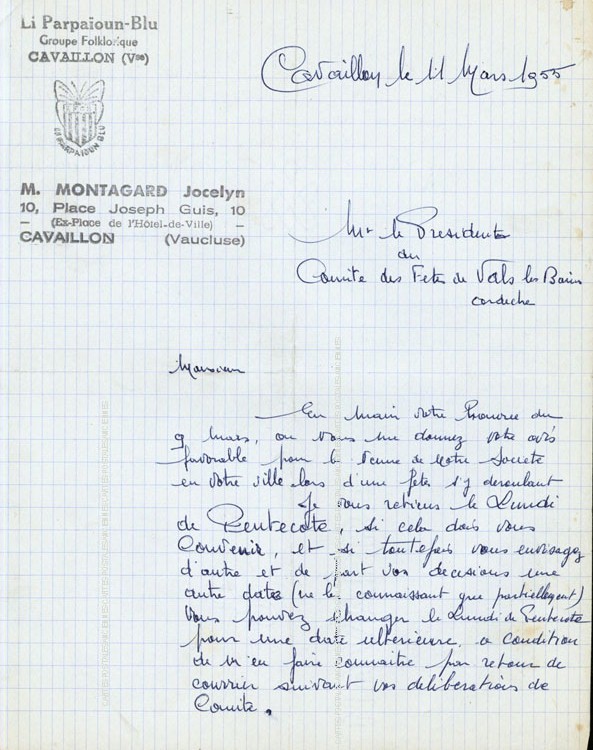 Li Parpaïoun-Blu
Groupe Folklorique
CAVAILLON (Vse)
LI PARPAIOUN BLU
M. MONTAGARD Jocelyn
10, Place Joseph Guis, 10
- (Ex-Place de l'Hôtel-de-Ville) -
CAVAILLON (Vaucluse)
Cavaillon le 11 Mars 1955
Mr le Presidente
du
Comite des Fetes de Vals les Bains
ardeche
Monsieur
En main votre du
9 mars, ou vous me donnez votre avis
favorable pour la venue de notre societe
en votre ville lors d'une fete s'y deroulant
Je vous retiens le Lundi
de Pentecote, si cela dois vous
Convenir, et si toutefois vous envisagez
d'autre et de part vos decisions une
autre date (ne le connaissant que partiellement)
Vous pouvez changer le Lundi de Pentecote
pour une date ulterieure, a condition
de m'en faire connaitre par retour de
courrier suivant vos deliberations de
Comite.